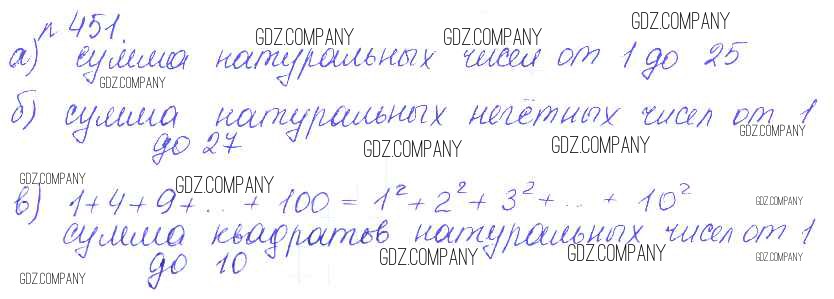 № 451.
а) сумма натуральных чисел от 1 до 25
б) сумма натуральных нечётных чисел от 1
до 27
в) 1+4+9+...+100 = 1²+2²+3²+...+10²
сумма квадратов натуральных чисел от 1
до 10
GDZ.COMPANY
GDZ.COMPANY
GDZ.COMPANY
GDZ.COMPANY
GDZ.COMPANY
GDZ.COMPANY
GDZ.COMPANY
GDZ.COMPANY
GDZ.COMPANY
GDZ.COMPANY
GDZ.COMPANY
GDZ.COMPANY
GDZ.COMPANY
GDZ.COMPANY